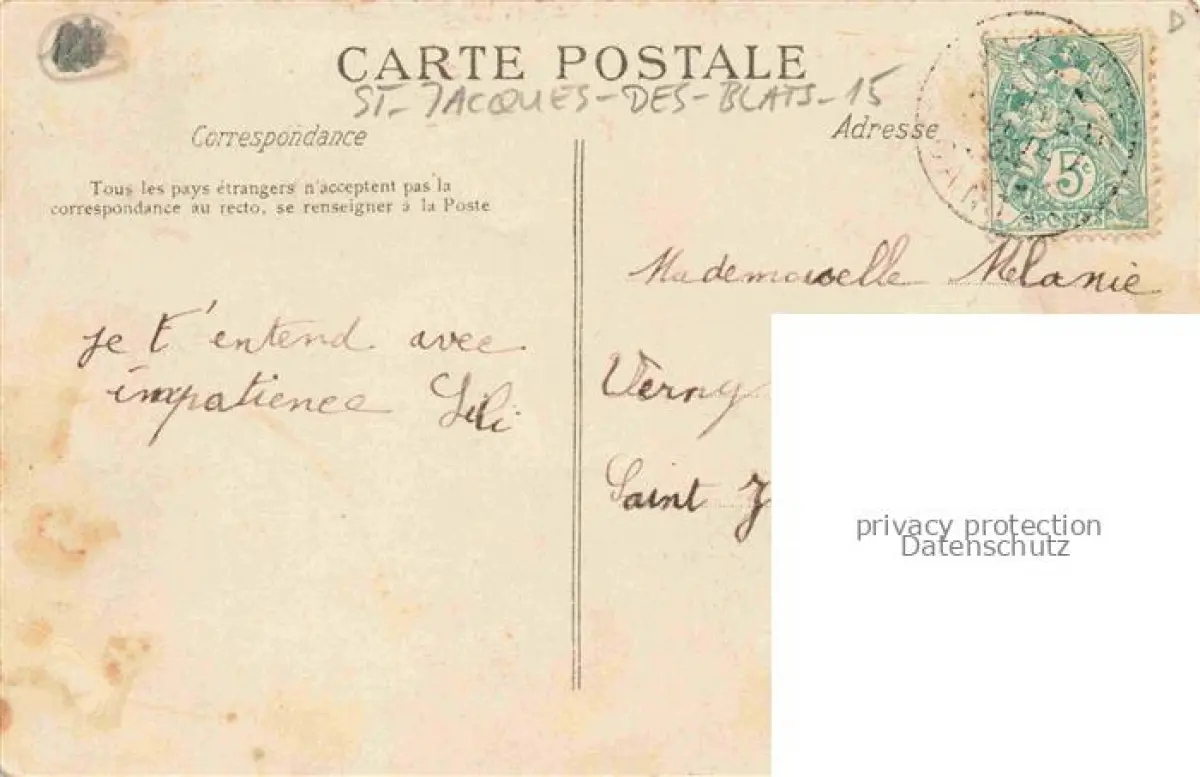 CARTE POSTALE
ST-JACQUES-DES-BLATS-15
Correspondance
Adresse
Tous les pays étrangers n'acceptent pas la
correspondance au recto, se renseigner à la Poste
5c
POSTES
Mademoiselle Mélanie
je t'entend avec
impatience Lili
Verny
Saint J
privacy protection
Datenschutz